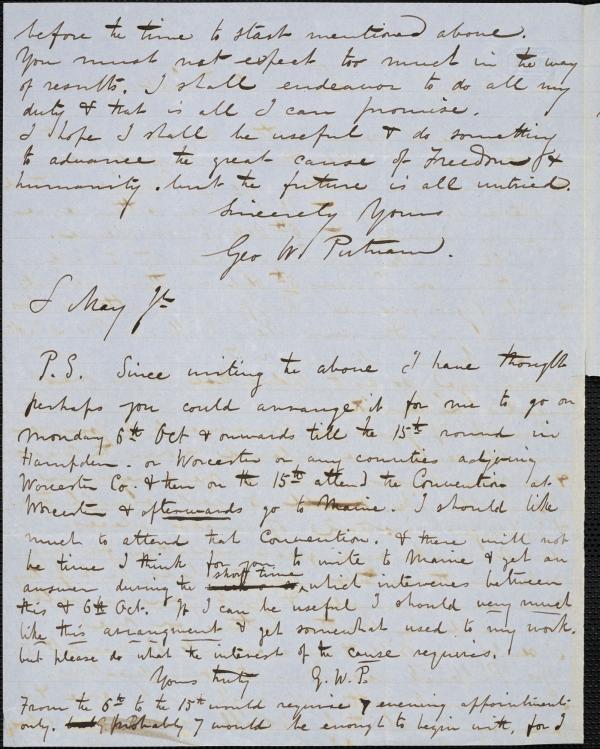 before the time to start mentioned above.
You must not expect too much in the way
of results. I shall endeavor to do all my
duty & that is all I can promise.
I hope I shall be useful & do something
to advance the great cause of Freedom &
humanity. but the future is all untried.
Sincerely Yours
Geo W Putnam.
S May Jr
P.S. Since writing the above I have thought
perhaps you could arrange it for me to go on
Monday 6th Oct & onwards till the 15th round in
Hampden. or Worcester or any counties adjoining
Worcester Co. & then on the 15th attend the Convention at
Worcester & afterwards go to Maine. I should like
much to attend that Convention. & there will not
be time I think for you to write to Maine & get an
answer during the short time which intervenes between
this & 6th Oct. If I can be useful I should very much
like this arrangement & get somewhat used to my work.
but please do what the interest of the cause requires.
Yours truly G. W. P.
From the 6th to the 15th would require 7 evening appointments
only. probably 7 would be enough to begin with, for I